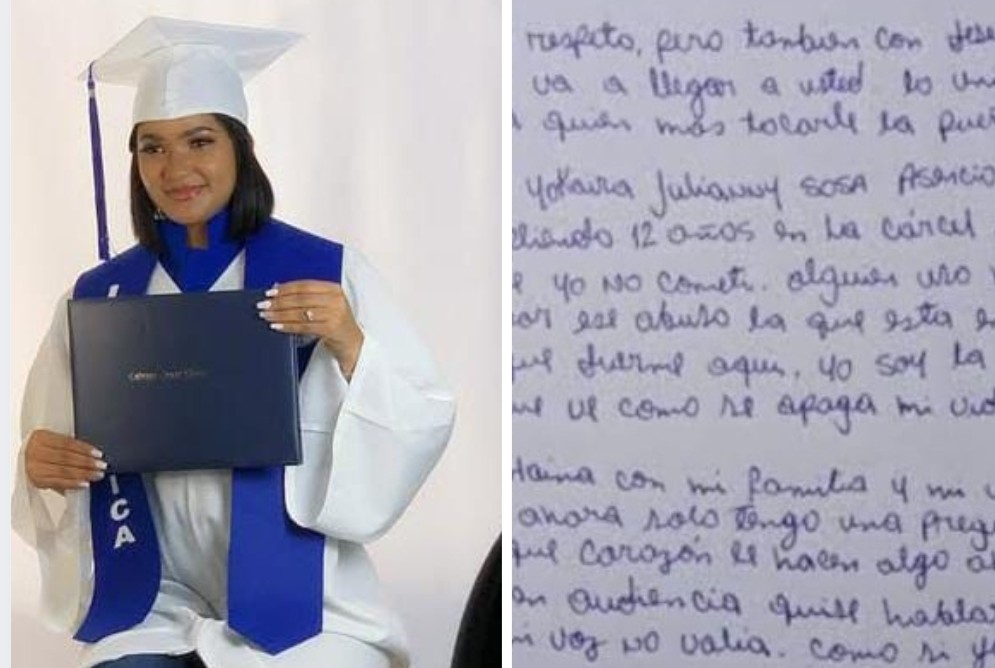 ICA
respeto, pero tanbien con dese
va a llegar a usted lo un
quien mas tocarle la puer
Yokaira Julianny SOSA Asencio
12 años en la cárcel
yo NO cometi. alguien uso
ese abuso la que esta e
duerme aqui. yo soy la
ve como se apaga mi vid
Haina con mi familia y mi v
ahora solo tengo una preg
que corazón le hacen algo a
en audiencia quise hablar
voz NO valia. como si y